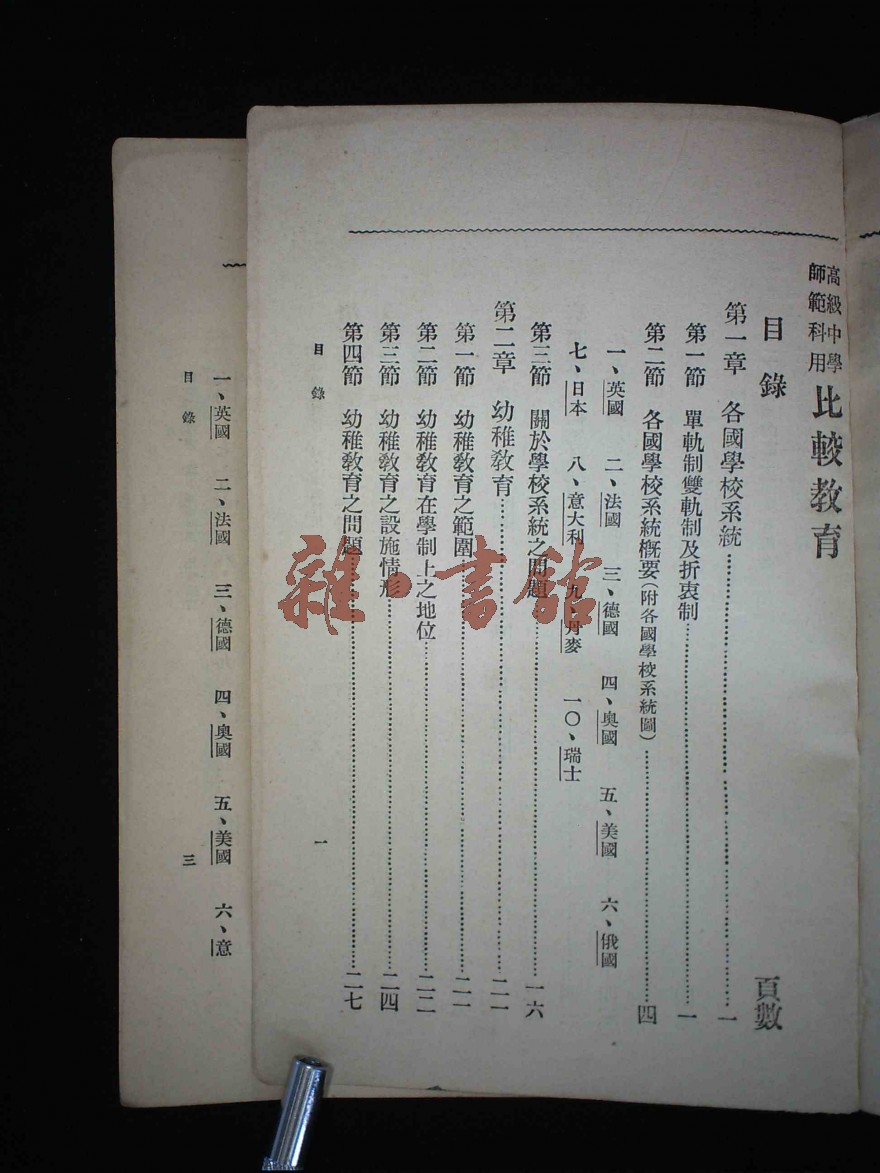 高級中學
師範科用
比較教育
目錄
頁數
第一章 各國學校系統……一
第一節 單軌制雙軌制及折衷制……一
第二節 各國學校系統概要(附各國學校系統圖)……四
一、英國 二、法國 三、德國 四、奧國 五、美國 六、俄國
七、日本 八、意大利 九、丹麥 一〇、瑞士
第三節 關於學校系統之問題……一六
第二章 幼稚教育……二一
第一節 幼稚教育之範圍……二一
第二節 幼稚教育在學制上之地位……二二
第三節 幼稚教育之設施情形……二四
第四節 幼稚教育之問題……二七
目錄 一
一、英國 二、法國 三、德國 四、奧國 五、美國 六、意
目錄 三
雜·書館